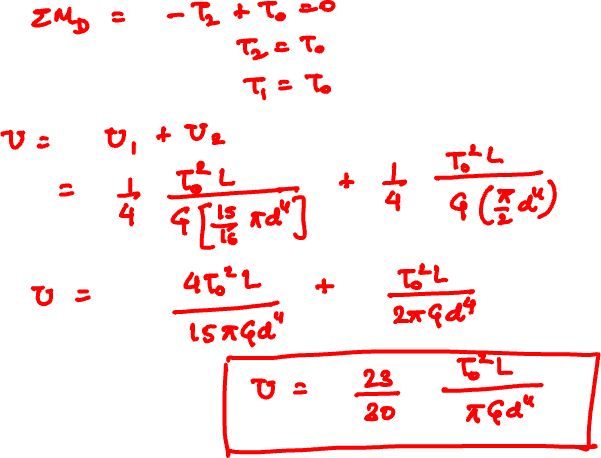 ΣM_D = -T_2 + T_0 = 0
T_2 = T_0
T_1 = T_0
U = U_1 + U_2
= 1/4 T_0^2 L / G[15/16 π d^4] + 1/4 T_0^2 L / G(π/2 d^4)
U = 4T_0^2 L / 15πGd^4 + T_0^2 L / 2πGd^4
U = 23/30 T_0^2 L / πGd^4